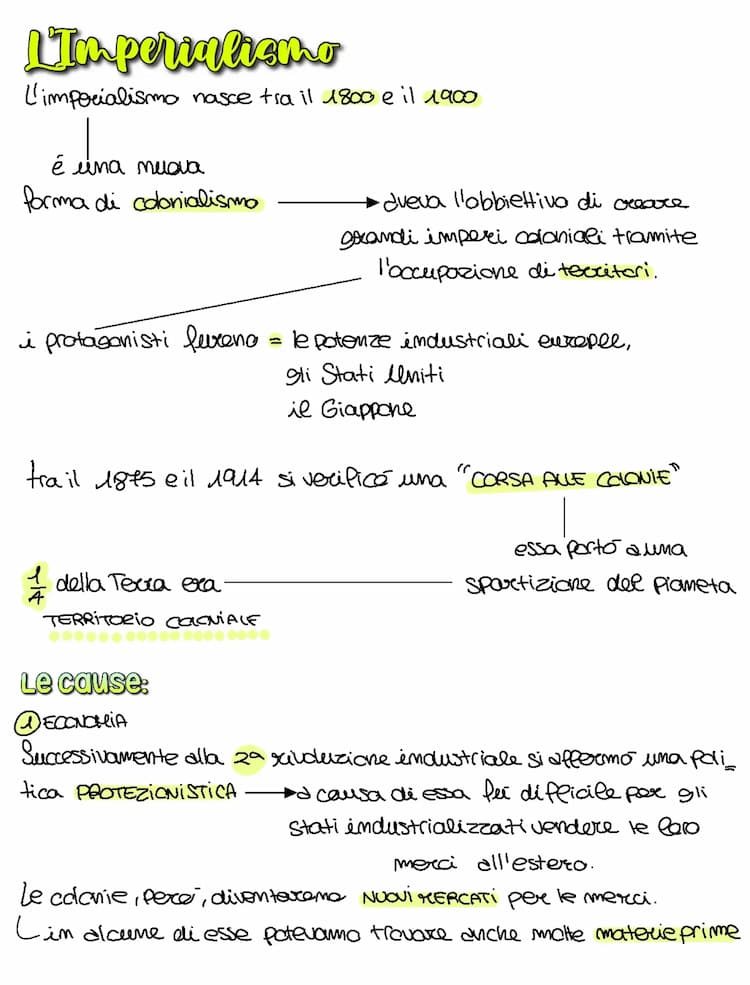 L'Imperialismo
L'imperialismo nasce tra il 1800 e il 1900
é una nuova
forma di colonialismo aveva l'obbiettivo di creare
grandi imperi coloniali tramite
l'occupazione di territori.
i protagonisti furono = le potenze industriali europee,
gli Stati Uniti
il Giappone
tra il 1875 e il 1914 si verificó una "CORSA ALLE COLONIE"
essa portó a una
1/4 della Terra era spartizione del pianeta
TERRITORIO COLONIALE
Le cause:
1 ECONOMIA
Successivamente alla 2ª rivoluzione industriale si affermó una poli_
tica PROTEZIONISTICA a causa di essa fu difficile per gli
stati industrializzati vendere le loro
merci all'estero.
Le colonie, peró, diventarono NUOVI MERCATI per le merci.
in alcune di esse potevamo trovare anche molte materie prime